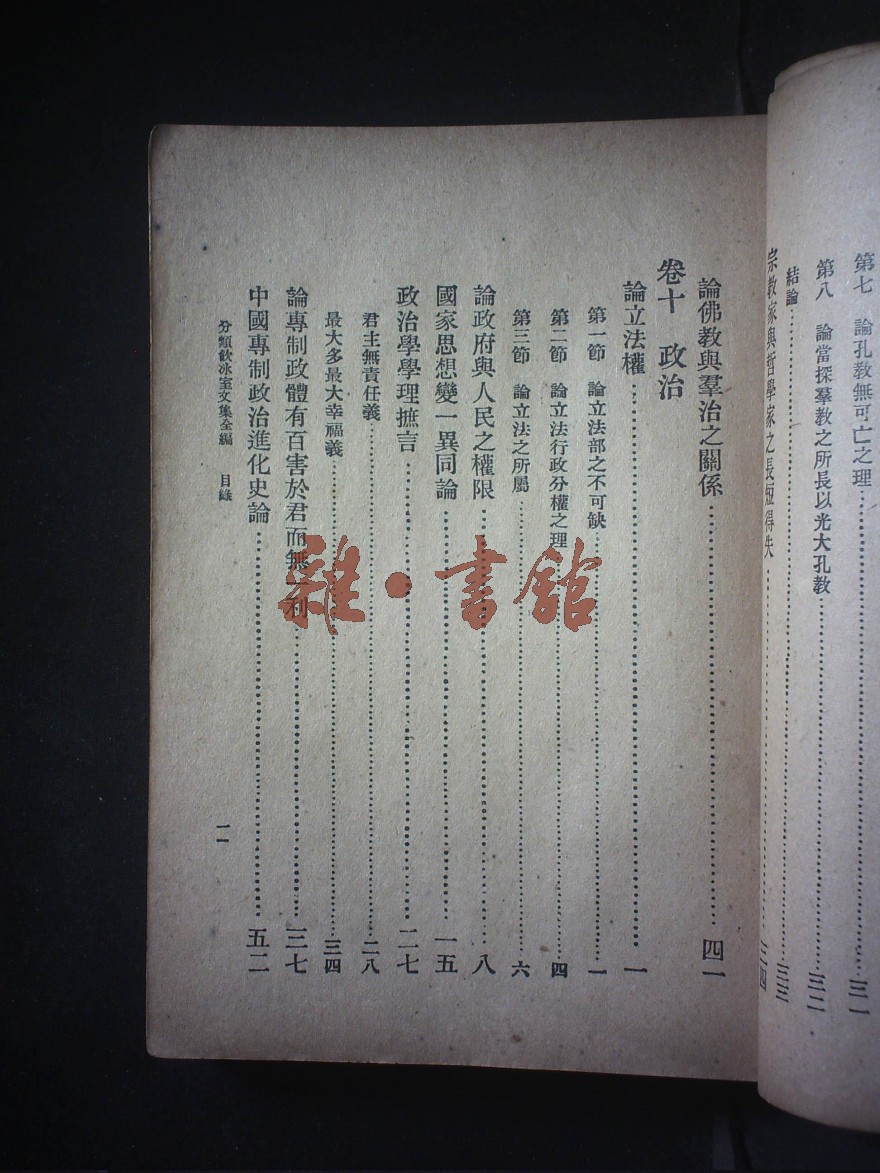 第七　論孔教無可亡之理……三一
第八　論當採羣教之所長以光大孔教……三二
結論……三三
宗教家與哲學家之長短得失……三四
論佛教與羣治之關係……四一
卷十　政治
論立法權……一
第一節　論立法部之不可缺……一
第二節　論立法行政分權之理……四
第三節　論立法之所屬……六
論政府與人民之權限……八
國家思想變一異同論……一五
政治學學理摭言……二七
君主無責任義……二八
最大多最大幸福義……三四
論專制政體有百害於君而無一利……三七
中國專制政治進化史論……五二
分類飲冰室文集全編　目錄
一一
雜·書館